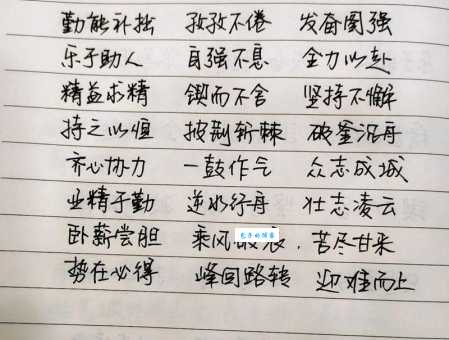 勤能补拙 孜孜不倦 发奋图强
乐于助人 自强不息 全力以赴
精益求精 锲而不舍 坚持不懈
持之以恒 披荆斩棘 破釜沉舟
齐心协力 一鼓作气 众志成城
业精于勤 逆水行舟 壮志凌云
卧薪尝胆 乘风破浪. 苦尽甘来
势在必得 峰回路转 迎难而上